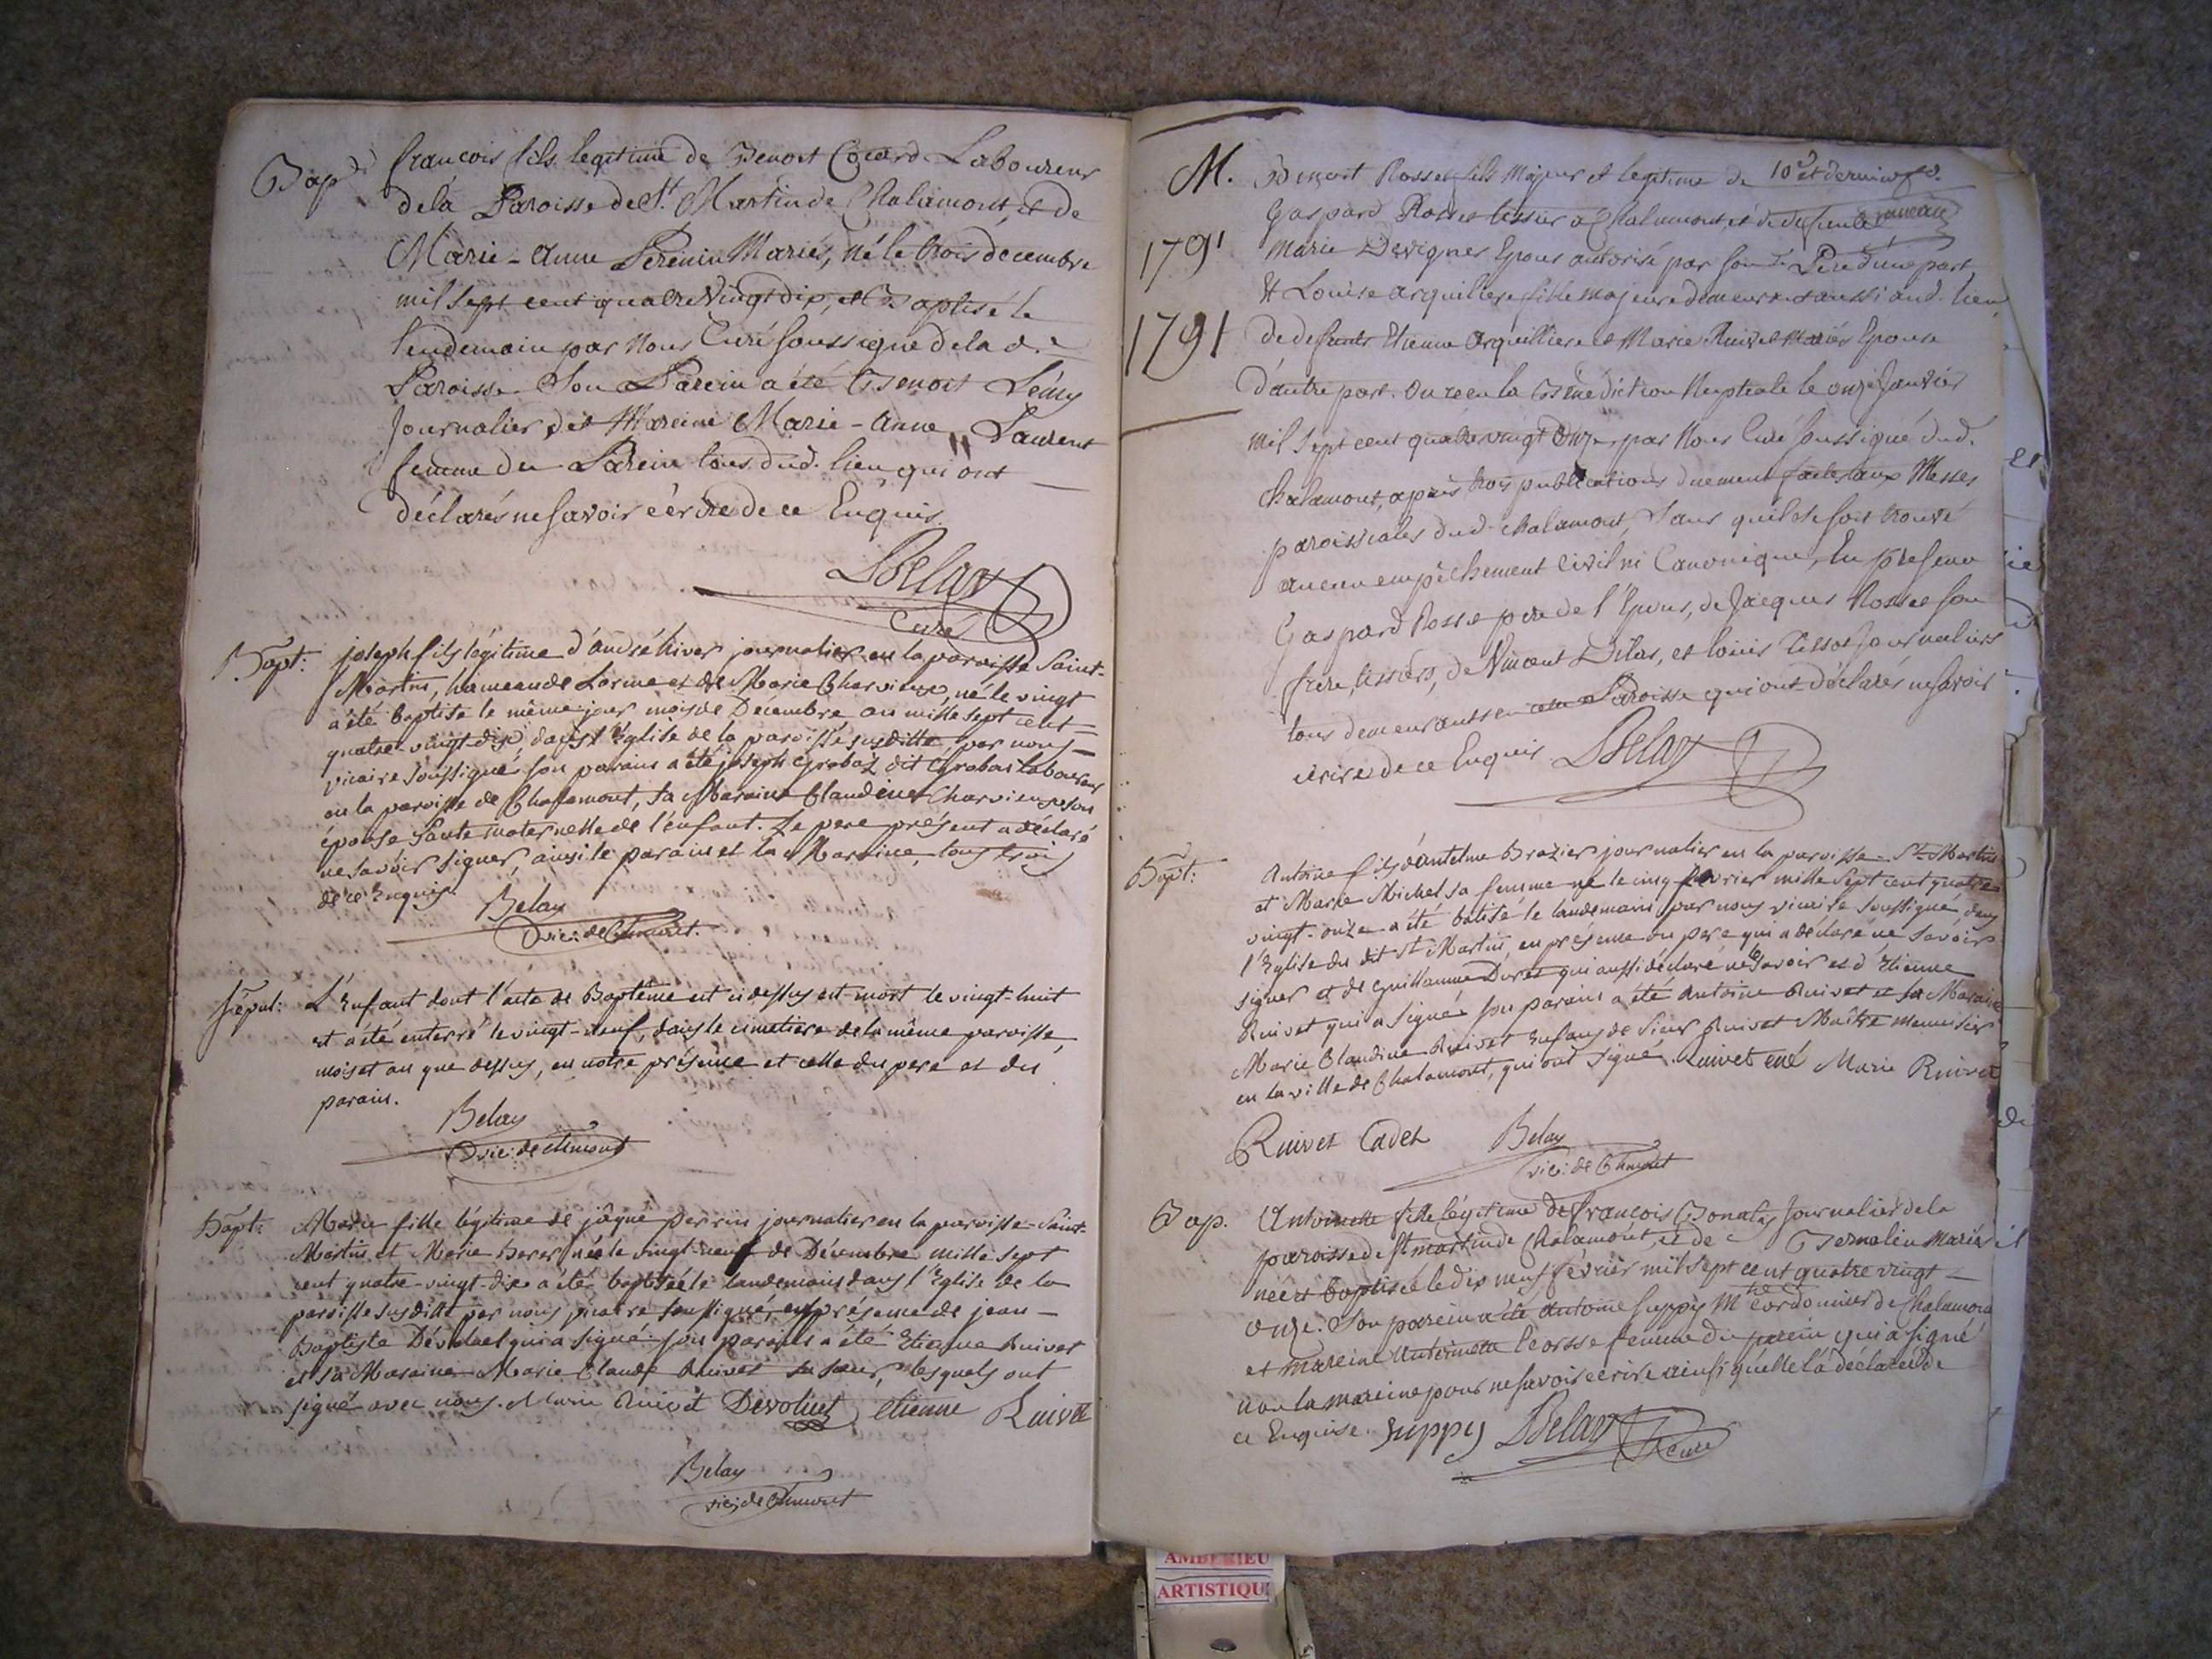 Bap.
francois fils legitime de Benoit Cocard Laboureur
dela Paroisse de St. Martin de Chalamont, et de
Marie-anne Perenin Mariés, né le trois decembre
mil sept cent quatre vingt dix, et Baptisé le
lendemain par Nous Curé soussigné de la d.e
Paroisse. Son Parein a été Benoit
Journalier, et Mareine Marie-anne Laurent
femme du Parein tous dud. lieu qui ont
déclarés ne savoir écrire de ce Enquis.
Belay
Curé
Bapt:
joseph fils légitime d'andré hiver journalier en la paroisse Saint-
Martin, hameau de Lorme et de Marie Charvieux, né le vingt
a été baptisé le même jour mois de Décembre an mille sept cent
quatre-vingt-dix, dans l'Eglise de la paroisse susditte, par nous
vicaire soussigné son parain a été joseph grobaz dit grobas Laboureur
en la paroisse de Chalamont, sa Maraine Claudine Charvieux son
épouse tante maternelle de l'enfant. Le pere présent a déclaré
ne savoir signer, ainsi le parain et la Maraine, tous trois
de ce Enquis.
Belay
vic: de Chmont.
Sépul:
L'Enfant dont l'acte de Baptême est ci dessus est mort le vingt-huit
et a été enterré le vingt-neuf, dans le cimetiere de la même paroisse,
mois et an que dessus, en notre présence et celle du pere et du
parain.
Belay
vic: de Chmont
Bapt:
Marie fille légitime de jâque perrin journalier en la paroisse Saint-
Martin et Marie née le vingt-neuf de Décembre mille sept
cent quatre-vingt-dix a été baptisée le landemain dans l'Eglise de la
paroisse susditte par nous vicaire soussigné, en présence de jean-
Baptiste Dévoluet qui a signé son parain a été Etienne Ruivet
et sa Maraine Marie Claude Ruivet sa sœur, lesquels ont
signé avec nous. Marie Ruivet Devoluet etienne Ruivet
Belay
vic: de Chmont
M.
1791
1791
Benoit Rosset fils Majeur et legitime de 10e et dernier
Gaspard Rosset tissier a Chalamont, et de defunte
Marie Devignes Epoux autorisé par son d. Pere d'une part,
Et Louise arquiliere fille majeure demeurant aussi aud. lieu
de defunts Etienne arquilliere et Marie Ruivet Mariés Epouse
d'autre part. Ont recu la Bénédiction Nuptiale le onze Janvier
mil sept cent quatre vingt Onze par Nous Curé soussigné dud.
Chalamont, après trois publications duement faites aux Messes
paroissiales dud. Chalamont, sans quil se soit trouvé
aucun empêchement Civil ni Canonique, En presence
Gaspard Rosset pere de l'Epoux, de Jacques Rosset son
frere, tissiers, de Vincent Dilas, et louis Tissot Journaliers
tous demeurants en cette Paroisse qui ont déclarés ne savoir
écrire de ce Enquis Belay
Bapt:
Antoine fils d'antelme Brazier journalier en la paroisse St. Martin
et Marie Michel sa femme né le cinq février mille sept cent quatre
vingt-onze a été batisé le landemain par nous vicaire soussigné dans
l'Eglise du dit st Martin en présence du pere qui a déclaré ne savoir
signer et de guillaume Duret qui aussi déclaré ne le savoir et d'Etienne
Ruivet qui a signé son parain a été Antoine Ruivet et sa Maraine
Marie Claudine Ruivet Enfans de Sieur Ruivet Maître menuisier
en la ville de Chalamont, qui ont signé. Ruivet ené Marie Ruivet
Ruivet Cadet Belay
vic: de Chmont
Bap.
Antoinette fille légitime de francois Bonatay Journalier de la
paroisse de st martin de Chalamont, et de Bernalin Mariés
née et baptisée le dix neuf février mil sept cent quatre vingt
onze. Son parein a été Antoine Juppy Mtre Cordonnier de Chalamont
et mareine Antoinette femme du parein qui a signé
non la mareine pour ne savoir ecrire ainsi quelle l'a déclarée de
ce Enquise. Juppy Belay curé
AMBERIEU
ARTISTIQU